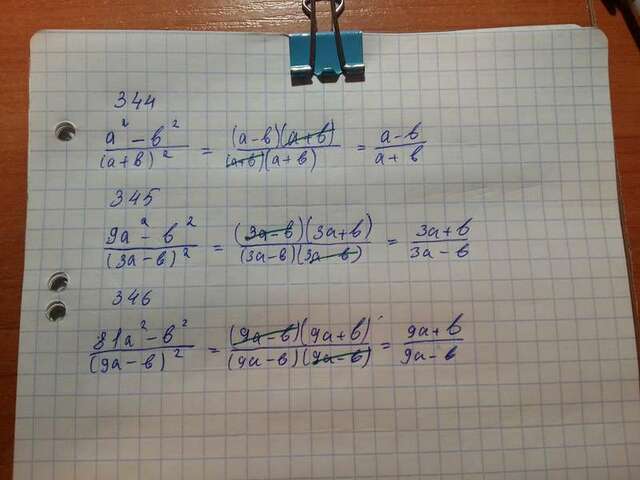 344
a² - b² / (a+b)² = (a-b)(a+b) / (a+b)(a+b) = a-b / a+b
345
9a² - b² / (3a-b)² = (3a-b)(3a+b) / (3a-b)(3a-b) = 3a+b / 3a-b
346
81a² - b² / (9a-b)² = (9a-b)(9a+b) / (9a-b)(9a-b) = 9a+b / 9a-b